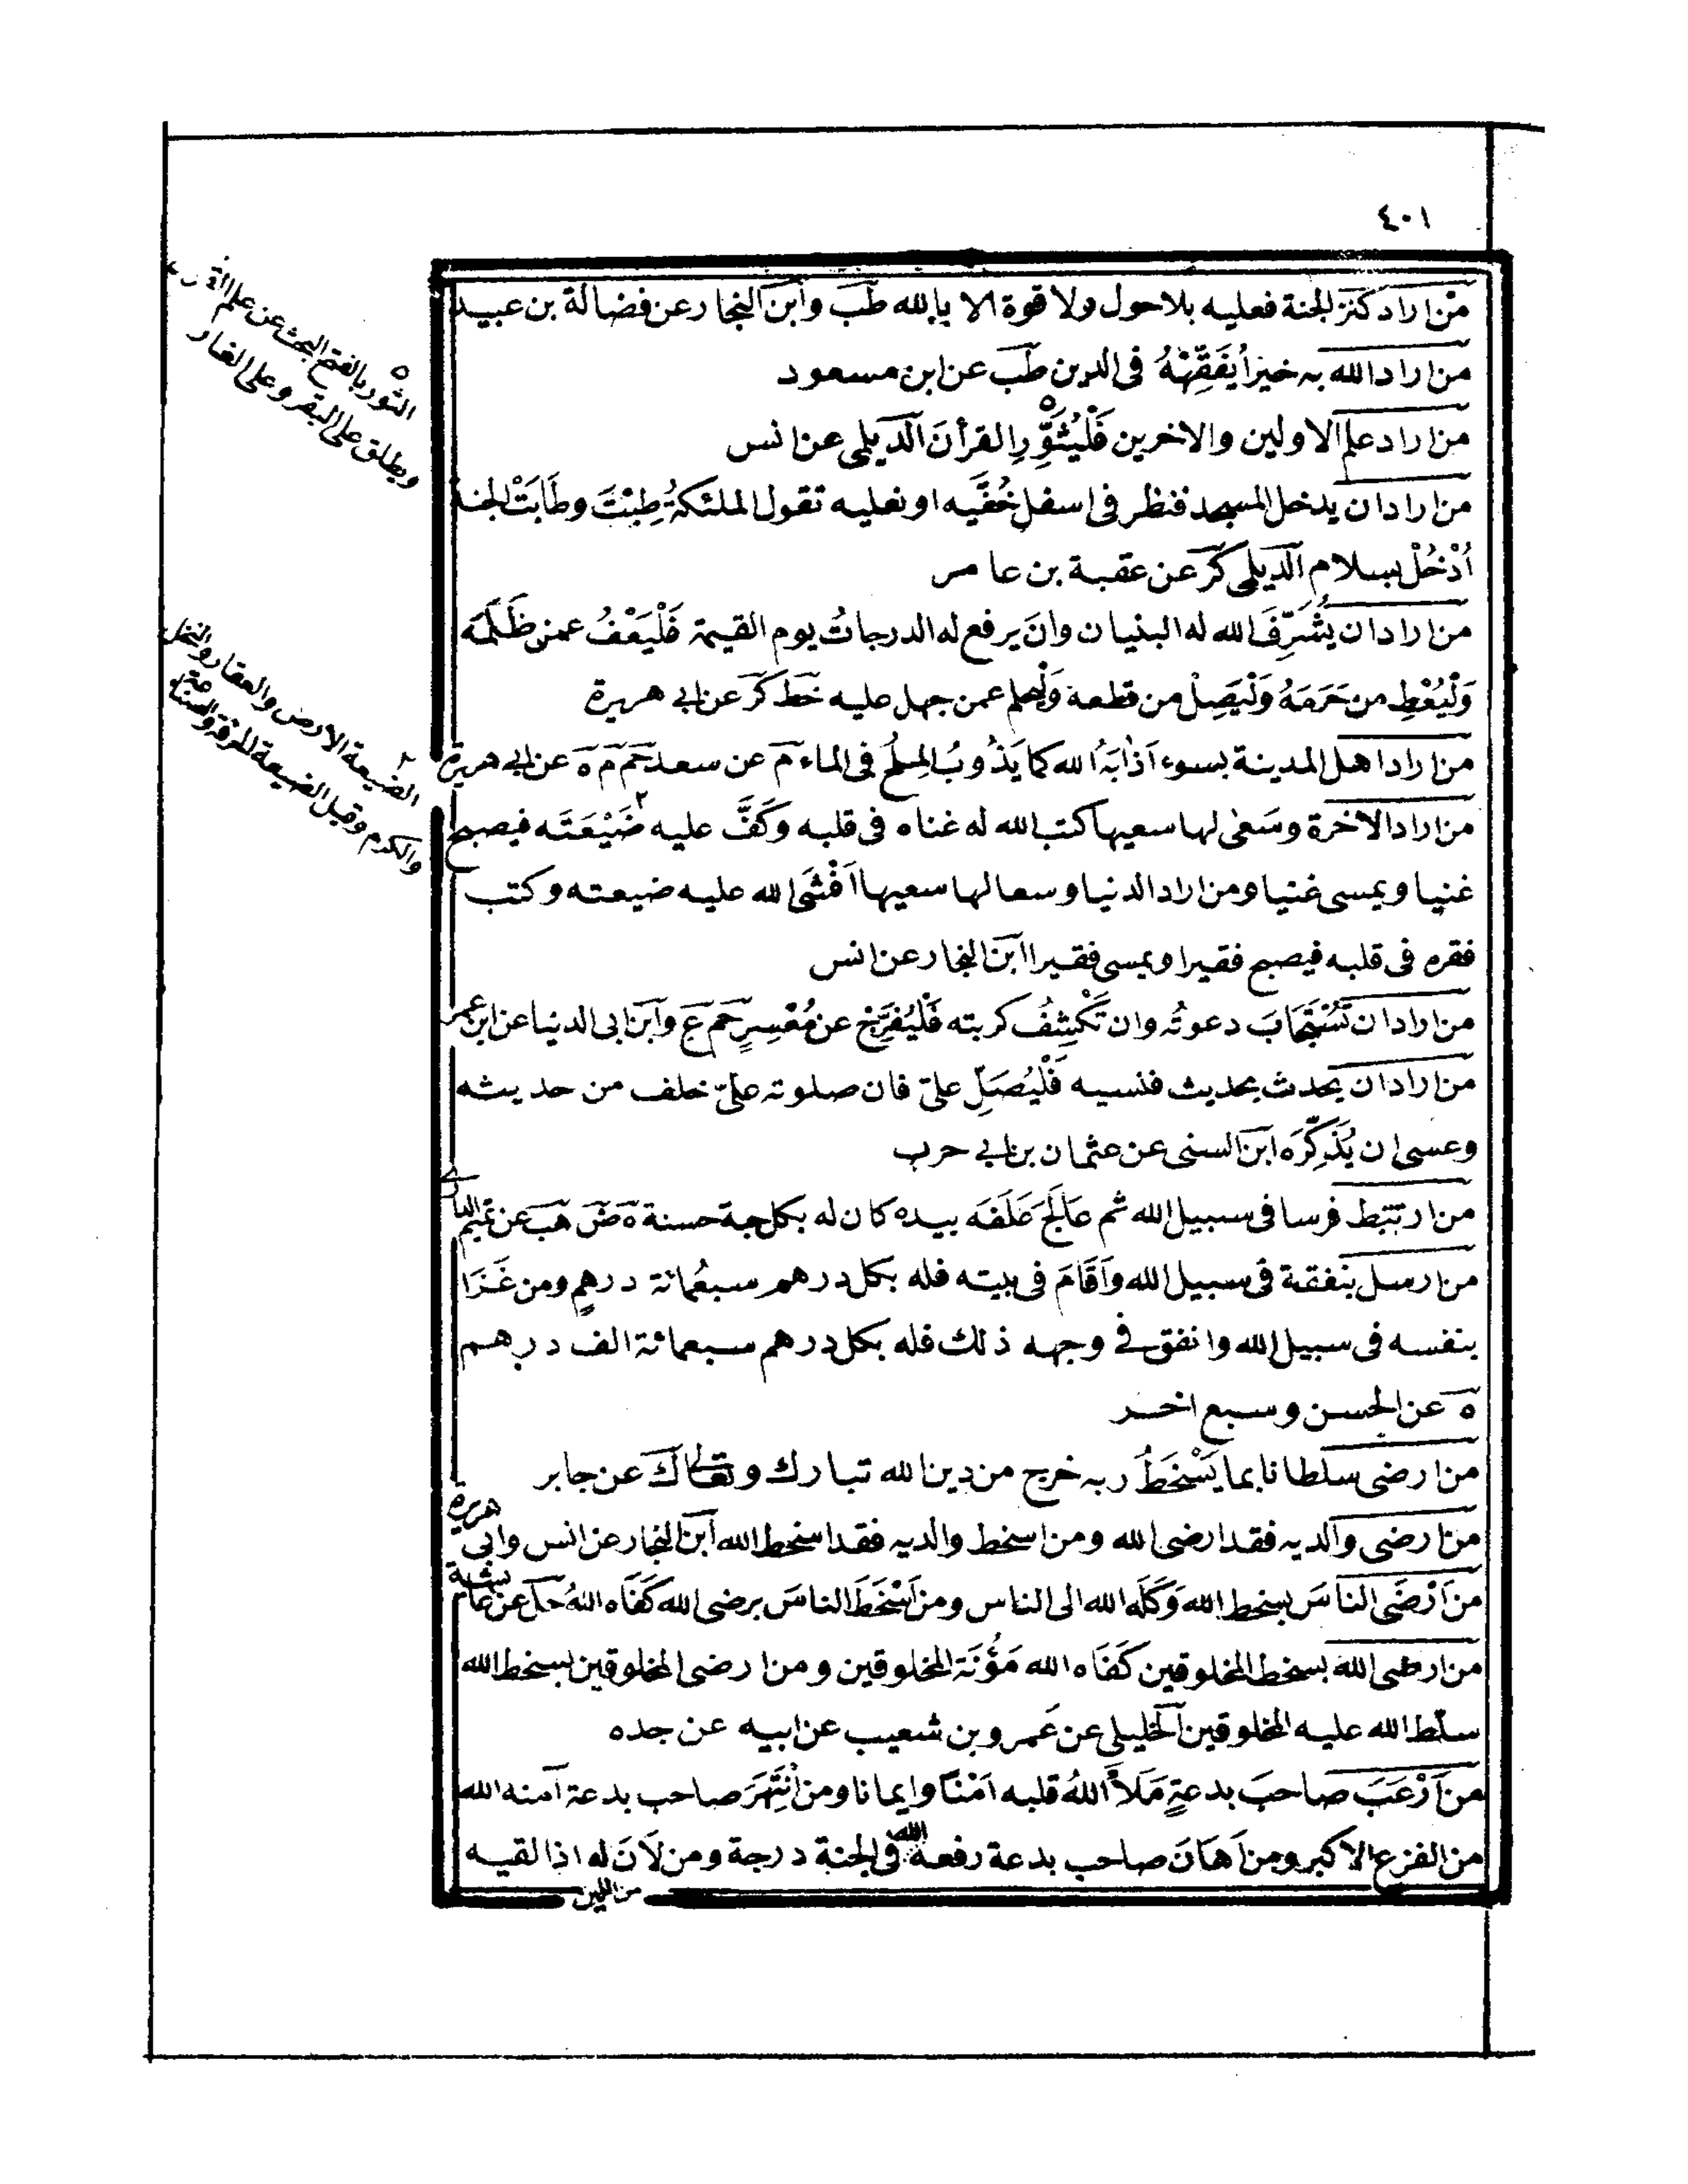 ٤٠١
من اراد كنز الجنة فعليه بلا حول ولا قوة الا بالله طب وابن النجار عن فضالة بن عبيد
من اراد الله به خيرا يُفَقِّهْهُ فى الدين طب عن ابن مسعود
من اراد علم الاولين والاخرين فَلْيُثَوِّرِ القرأنَ الديلمى عن انس
من اراد ان يدخل المسجد فنظر فى اسفل خُفَّيه او نعليه تقول الملئكةُ طِبْتَ وطَابَتْ الجنة
اُدْخُلْ بسلام الديلمى كر عن عقبة بن عامر
من اراد ان يُشَرِّفَ الله له البنيان وان يرفع له الدرجاتُ يوم القيمة فَلْيَعْفُ عمن ظَلَمَه
وَلْيُعْطِ من حَرَمَهُ وَلْيَصِلْ من قطعه وَلْيحلم عمن جهل عليه خط كر عن ابى هريرة
من اراد اهل المدينة بسوء اَذَابَهُ الله كما يَذُوبُ المِلحُ فى الماء م عن سعد حم م ه عن ابى هريرة
من اراد الاخرة وسَعٰى لها سعيها كتب الله له غناه فى قلبه وكَفَّ عليه ضَيْعَتَه فيصبح
غنيا ويمسى غنيا ومن اراد الدنيا وسعا لها سعيها اَفْشَى الله عليه ضيعته وكتب
فقره فى قلبه فيصبح فقيرا ويمسى فقيرا ابن النجار عن انس
من اراد ان تُسْتَجَابَ دعوتُه وان تُكْشفُ كربته فَلْيُفَرِّجْ عن مُعْسِرٍ حم ع وابن ابى الدنيا عن ابن عمر
من اراد ان يحدث بحديث فنسيه فَلْيُصَلِّ علىّ فان صلوته علىّ خلف من حديثه
وعسى ان يُذَكِّرَه ابن السنى عن عثمان بن ابى حرب
من ارتبط فرسا فى سبيل الله ثم عالَجَ عَلَفَه بيده كان له بكل حبة حسنة ه ض هب عن تميم الدارى
من ارسل بنفقة فى سبيل الله واَقَامَ فى بيته فله بكل درهم سبعمائة درهمٍ ومن غَزَا
بنفسه فى سبيل الله وانفق فى وجهه ذلك فله بكل درهم سبعمائة الف درهم
ه عن الحسن وسبع اخر
من ارضى سلطانا بما يَسْخَطُ ربه خرج من دين الله تبارك وتعالى ك عن جابر
من ارضى والديه فقد ارضى الله ومن اسخط والديه فقد اسخط الله ابن النجار عن انس وابى هريرة
من اَرْضَى الناسَ بسخط الله وَكَلَه الله الى الناس ومن اَسْخَطَ الناسَ برضى الله كَفَاه اللهُ حل عن عائشة
من ارضى الله بسخط المخلوقين كَفَاه الله مَؤُنَة المخلوقين ومن ارضى المخلوقين بسخط الله
سلّط الله عليه المخلوقين الخليلى عن عَمرو بن شعيب عن ابيه عن جده
من اَرْعَبَ صاحبَ بدعةٍ مَلَأَ اللهُ قلبه اَمْنًا وايمانا ومن اِنْتَهَرَ صاحب بدعة آمنه الله
من الفزع الاكبر ومن اَهَانَ صاحب بدعة رفعه الله فى الجنة درجة ومن لَانَ له اذا لقيه
من اللين
٥
الثور بالفتح البحث عن علم
ويطلق على البقر وعلى الغار
٢
الضيعة الارض والعقار والنخل
والكرم وقيل الضيعة الحرفة والصناعة